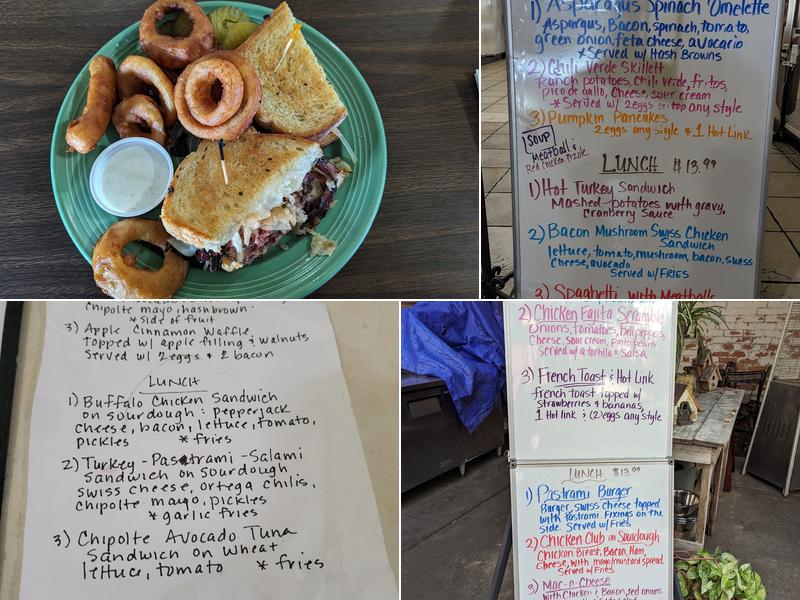 1) Asparagus Spinach Omelette
Asparagus, Bacon, spinach, tomato,
green onion, feta cheese, avocario
*Served w/ Hash Browns
2) Chili Verde Skillett
Ranch potatoes, chili verde, fritos,
pico de gallo, cheese, sour cream
*Served w/ 2 eggs on top any style
3) Pumpkin Pancakes
2 eggs any style & 1 Hot Link
SOUP
Meatball &
Red Chicken Pozole
LUNCH $13.99
1) Hot Turkey Sandwich
Mashed potatoes with gravy,
cranberry sauce
2) Bacon Mushroom Swiss Chicken
Sandwich
lettuce, tomato, mushroom, bacon, swiss
cheese, avocado
Served w/ FRIES
3) Spaghetti with Meatballs
chipolte mayo, hashbrown.
*side of fruit
3) Apple Cinnamon Waffle,
topped w/ apple filling & walnuts
Served w/ 2 eggs & 2 bacon
LUNCH
1) Buffalo Chicken Sandwich
on sourdough: pepperjack
cheese, bacon, lettuce, tomato,
pickles *fries
2) Turkey-Pastrami-Salami
Sandwich on sourdough
swiss cheese, ortega chilis,
chipolte mayo, pickles
*garlic fries
3) Chipolte Avocado Tuna
Sandwich on wheat
lettuce, tomato *fries
2) Chicken Fajita Scramble
Onions, tomatoes, bell peppers,
cheese, sour cream, pinto beans
served w/ a tortilla & salsa
3) French Toast & Hot Link
french toast topped w/
strawberries & bananas,
1 Hot link & (2) eggs any style
LUNCH $13.99
1) Pastrami Burger
Burger, swiss cheese topped
with Pastrami. Fixings on the
side. Served w/ Fries
2) Chicken Club on Sourdough
Chicken Breast, Bacon, Ham,
cheese, with mayo/mustard spread.
Served w/ Fries
3) Mac-n-Cheese
with Chicken & Bacon, red onions